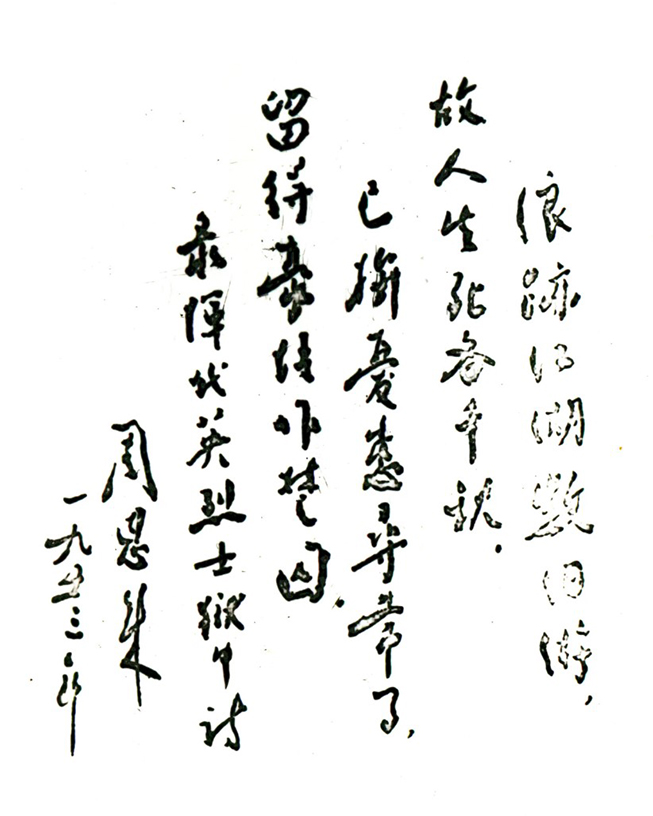 浪跡江湖數旧游，
故人生死各千秋．
已擯憂患尋常了，
留得豪情作楚囚．
录惲代英烈士獄中詩
周恩来
一九五三年